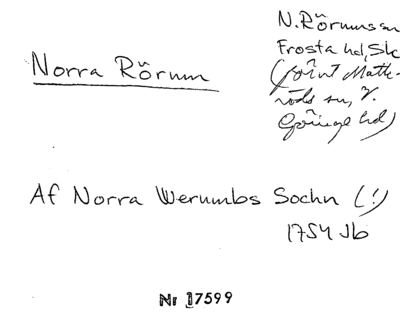 Norra Rörum
N. Rörums sn
Frosta hd, Sk
(förut Matte-
röds sn, V.
Göinge hd)
Af Norra Werumbs Sochn (!)
1754 Jb
Nr 17599